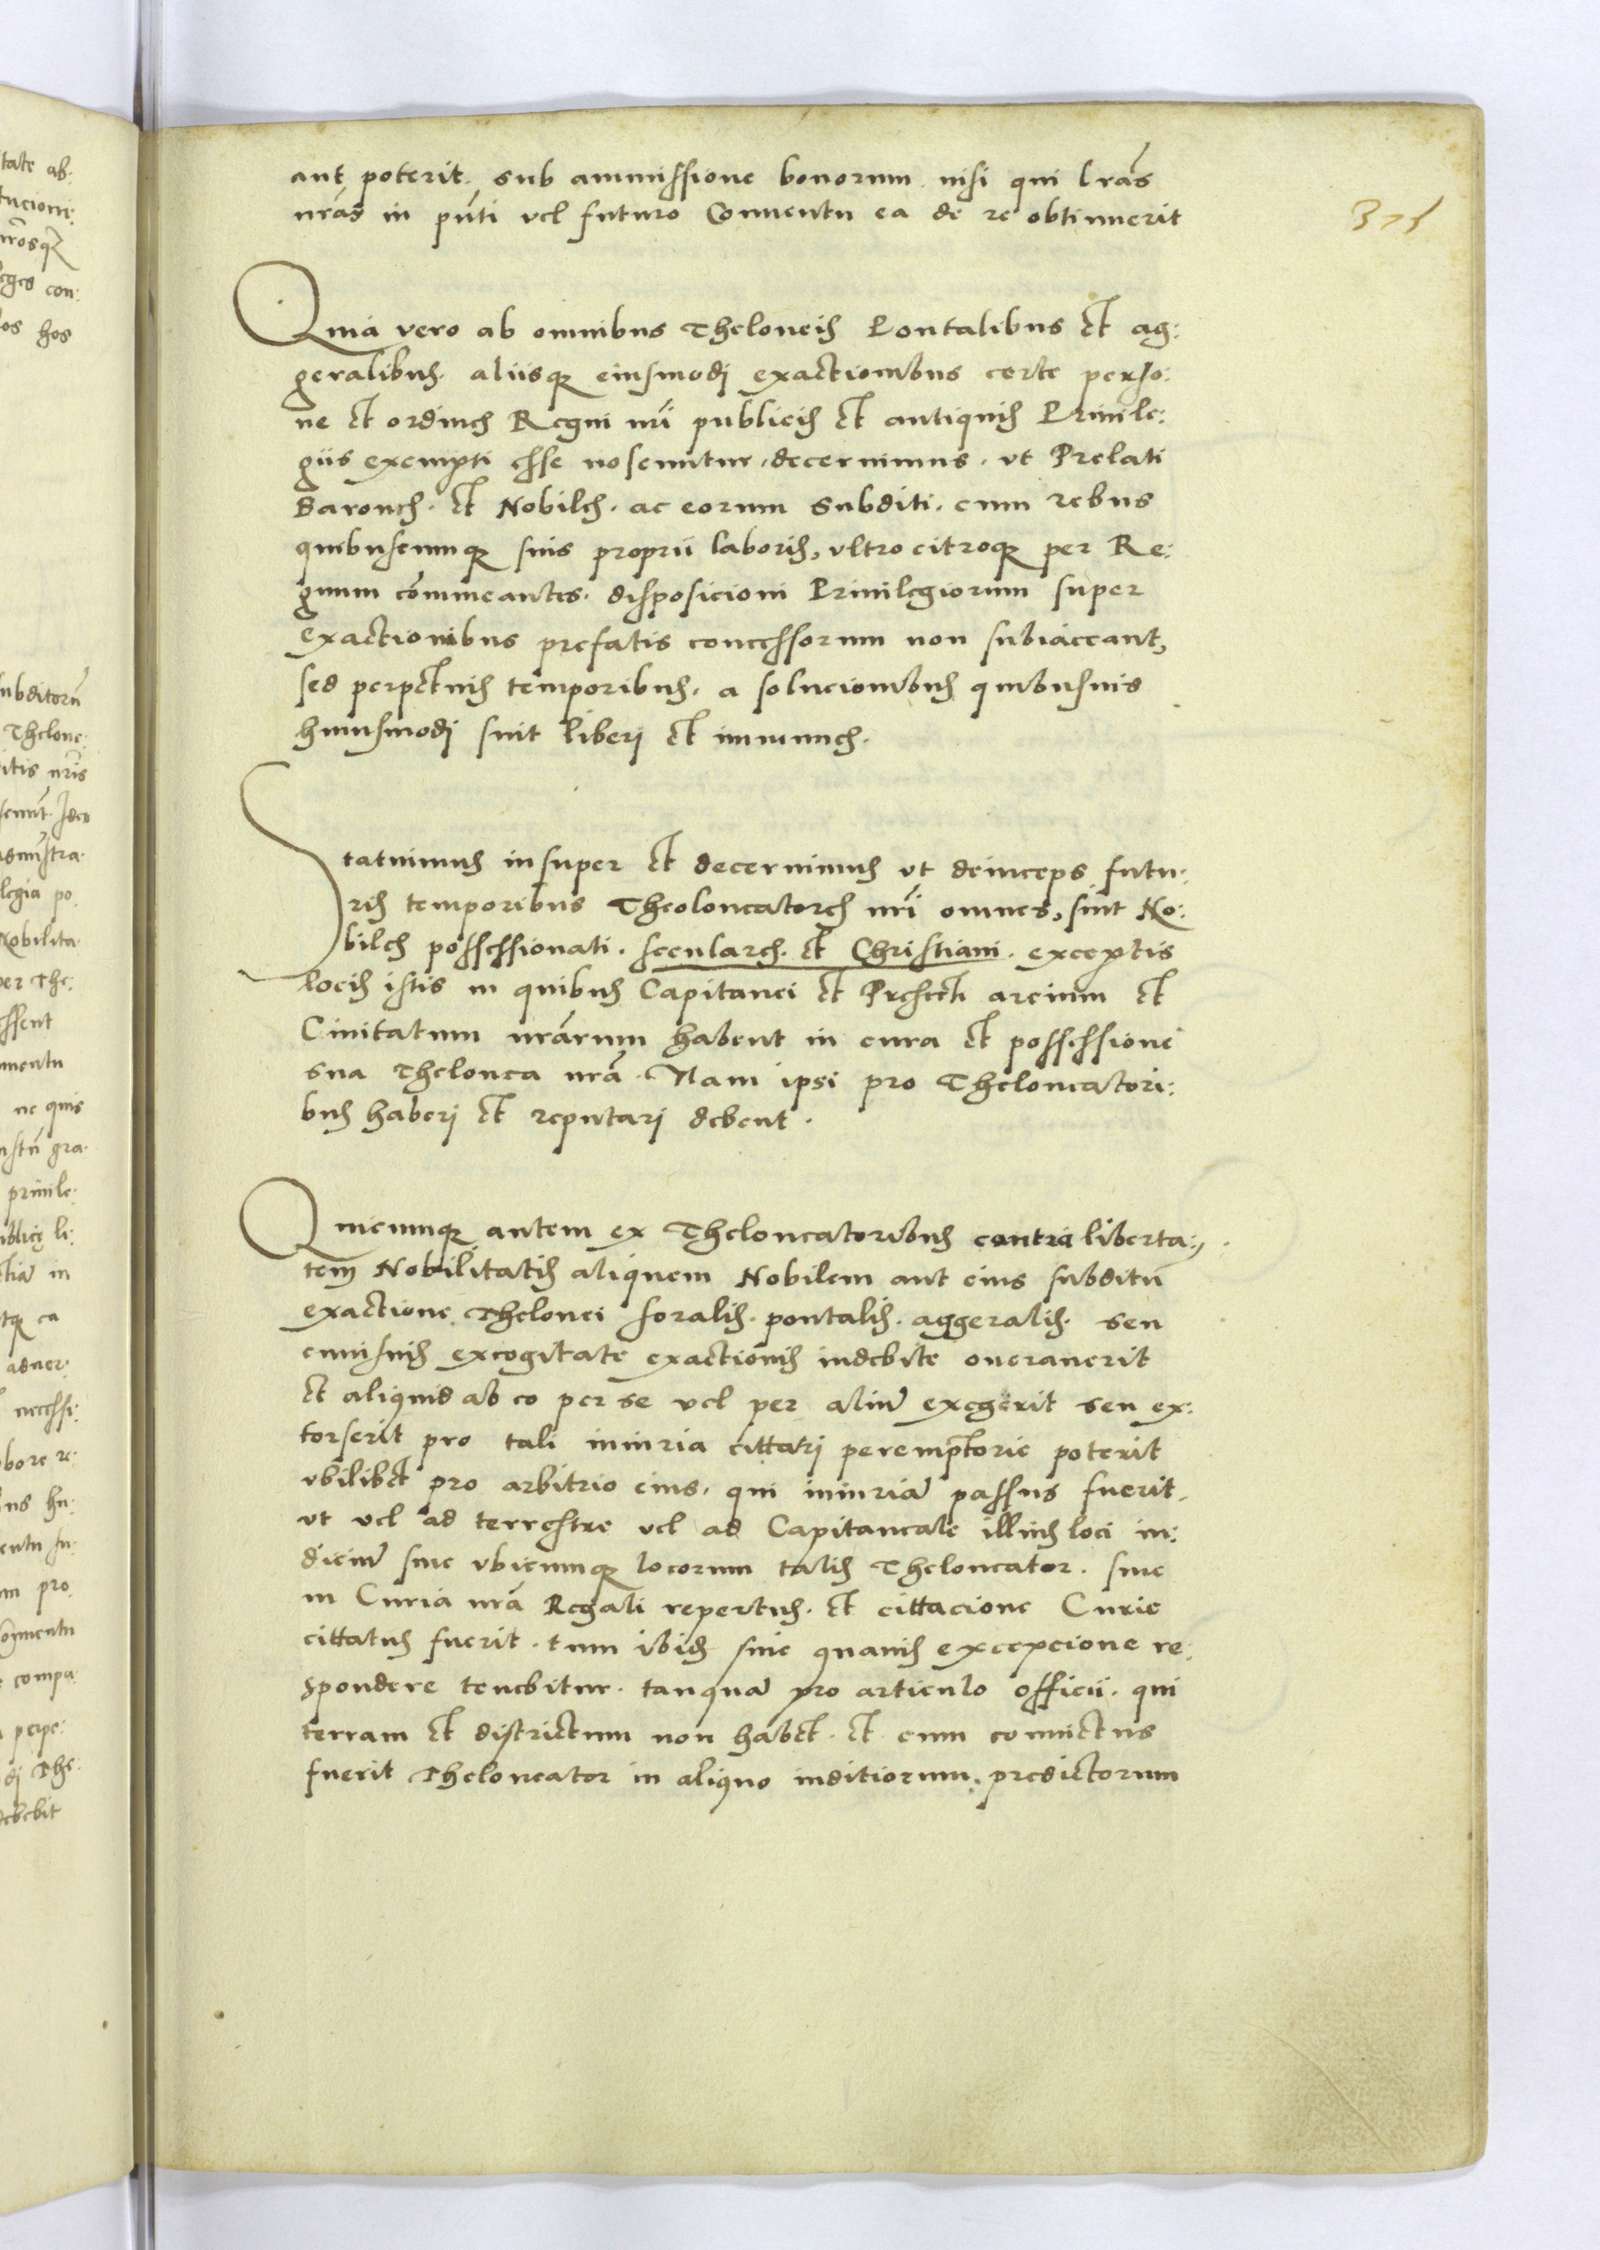 aut poterit. sub ammissione bonorum nisi qui lrãs
nrãs in pñti vel futuro Conuentu ea de re obtinuerit
375
Quia vero ab omnibus Theloneis Pontalibus et ag:
geralibus. aliisque eiusmodi exactionibus certe perso:
ne et ordines Regni nri publicis et antiquis Priuile:
giis exempti esse noscuntur, decernimus. vt Prelati
Barones. et Nobiles. ac eorum Subditi. cum rebus
quibuscumque suis proprii laboris, vltro citroque per Re:
gnum cõmmeantes. disposicioni Priuilegiorum super
exactionibus prefatis concessorum non subiaceant,
sed perpetuis temporibus. a solucionibus quibusuis
huiusmodi sint liberi et immunes.
Statuimus insuper et decernimus vt deinceps futu:
ris temporibus Theoloneatores nri omnes, sint No:
biles possessionati. seculares. et Christiani. exceptis
locis istis in quibus Capitanei et Prefecti arcium et
Ciuitatum nrãrum habent in cura et possessione
sua Thelonea nrã. Nam ipsi pro Theloneatori:
bus haberi et reputari debent.
Quicumque autem ex Theloneatoribus contra liberta:
tem Nobilitatis aliquem Nobilem aut eius subditũ
exactione Thelonei foralis. pontalis. aggeralis. seu
cuiusuis excogitate exactionis indebite onerauerit
et aliquid ab eo per se vel per aliũ exegerit seu ex:
torserit pro tali iniuria cittari peremptorie poterit
vbilibet pro arbitrio eius. qui iniuriã passus fuerit.
vt vel ad terrestre vel ad Capitaneale illius loci iu:
diciũ siue vbicumque locorum talis Theloneator. siue
in Curia nrã Regali repertus. et cittacione Curie
cittatus fuerit. tum ibidem sine quauis excepcione re:
spondere tenebitur. tanquã pro articulo officii. qui
terram et districtum non habet. et cum conuictus
fuerit Theloneator in aliquo inditiorum. predictorum